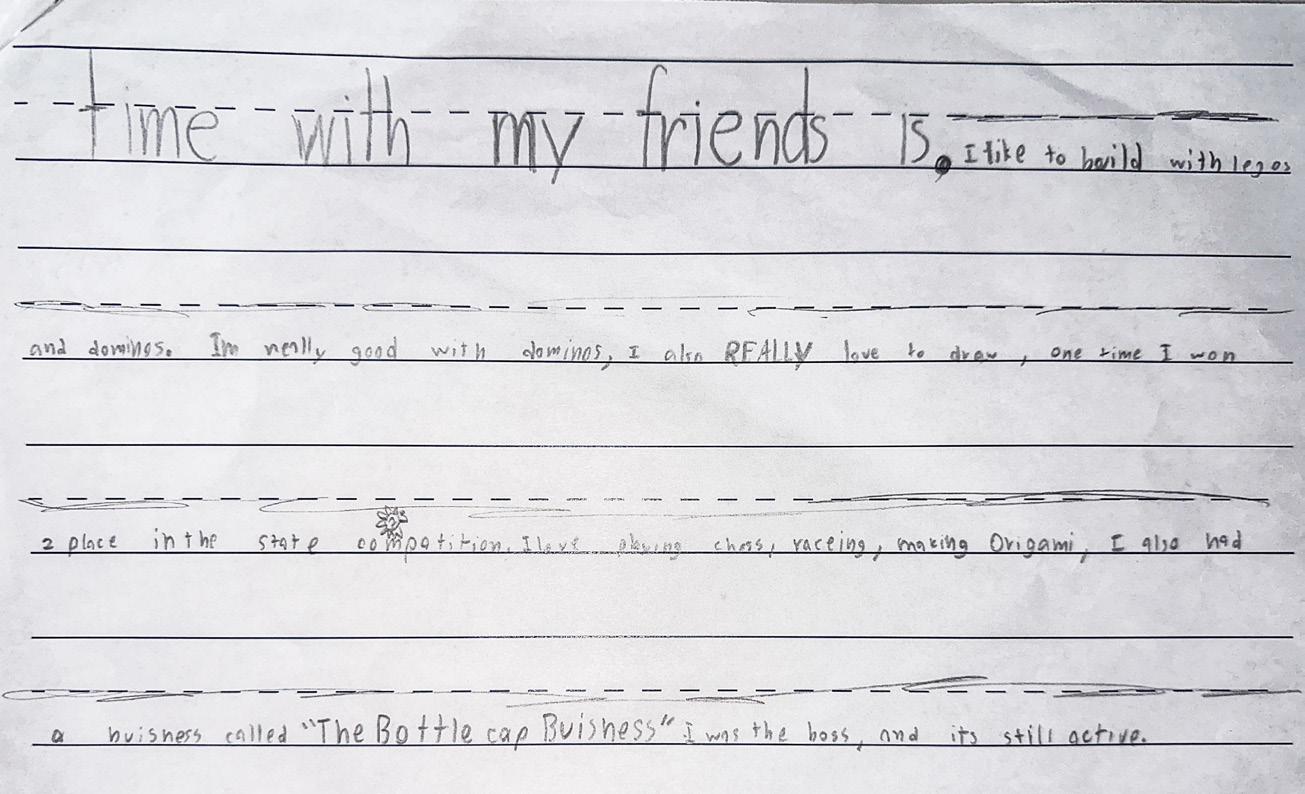 time with my friends is. I like to build with legos
and dominos. Im really good with dominos, I also REALLY love to draw, one time I won
2 place in the state compatition. I love playing chess, raceing, making Origami, I also had
a buisness called "The Bottle cap Buisness" I was the boss, and its still active.